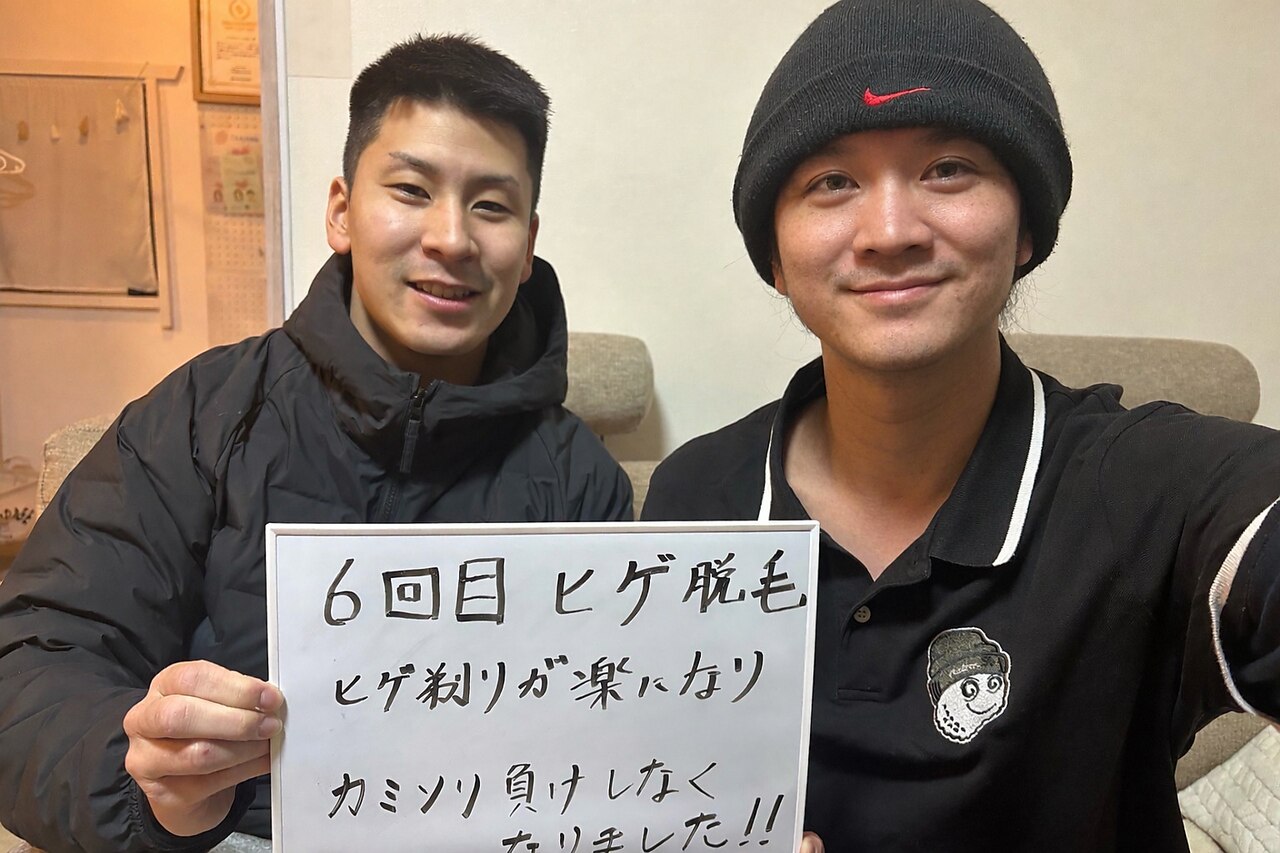 6回目 ヒゲ脱毛
ヒゲ剃りが楽になり
カミソリ負けしなく
なりました!!